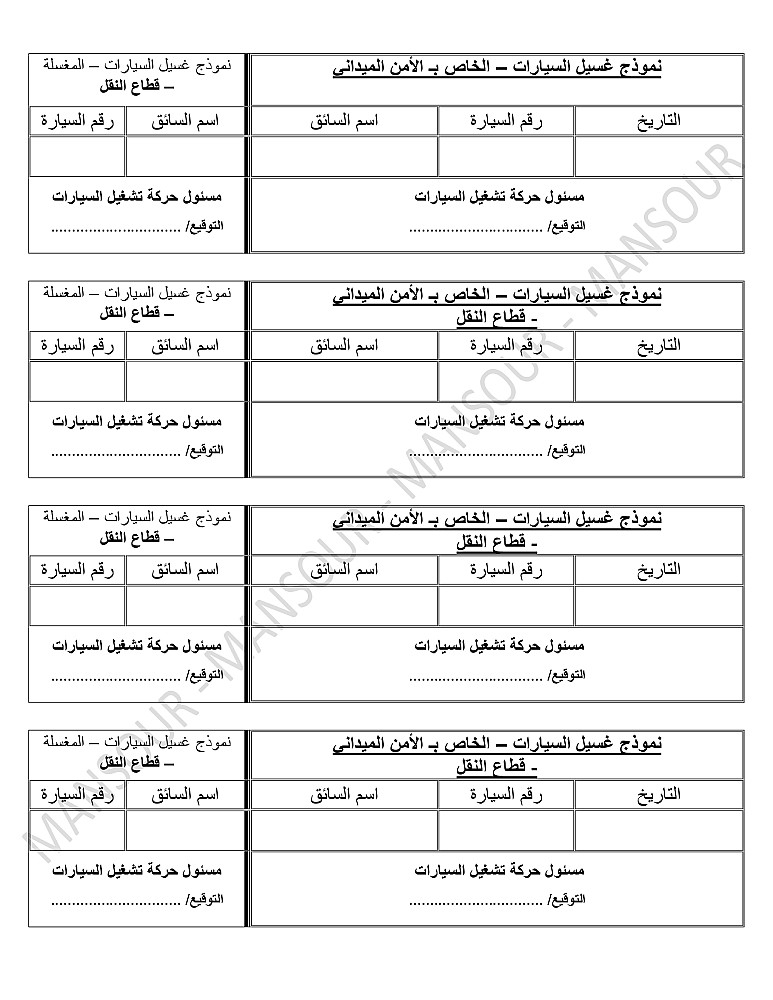 نموذج غسيل السيارات – الخاص بـ الأمن الميداني
التاريخ
رقم السيارة
اسم السائق
مسئول حركة تشغيل السيارات
التوقيع/ ................................
نموذج غسيل السيارات – المغسلة
– قطاع النقل
اسم السائق
رقم السيارة
مسئول حركة تشغيل السيارات
التوقيع/ ...............................
نموذج غسيل السيارات – الخاص بـ الأمن الميداني
- قطاع النقل
التاريخ
رقم السيارة
اسم السائق
مسئول حركة تشغيل السيارات
التوقيع/ ................................
نموذج غسيل السيارات – المغسلة
– قطاع النقل
اسم السائق
رقم السيارة
مسئول حركة تشغيل السيارات
التوقيع/ ...............................
نموذج غسيل السيارات – الخاص بـ الأمن الميداني
- قطاع النقل
التاريخ
رقم السيارة
اسم السائق
مسئول حركة تشغيل السيارات
التوقيع/ ................................
نموذج غسيل السيارات – المغسلة
– قطاع النقل
اسم السائق
رقم السيارة
مسئول حركة تشغيل السيارات
التوقيع/ ...............................
نموذج غسيل السيارات – الخاص بـ الأمن الميداني
- قطاع النقل
التاريخ
رقم السيارة
اسم السائق
مسئول حركة تشغيل السيارات
التوقيع/ ................................
نموذج غسيل السيارات – المغسلة
– قطاع النقل
اسم السائق
رقم السيارة
مسئول حركة تشغيل السيارات
التوقيع/ ...............................
MANSOUR - MANSOUR - MANSOUR - MANSOUR